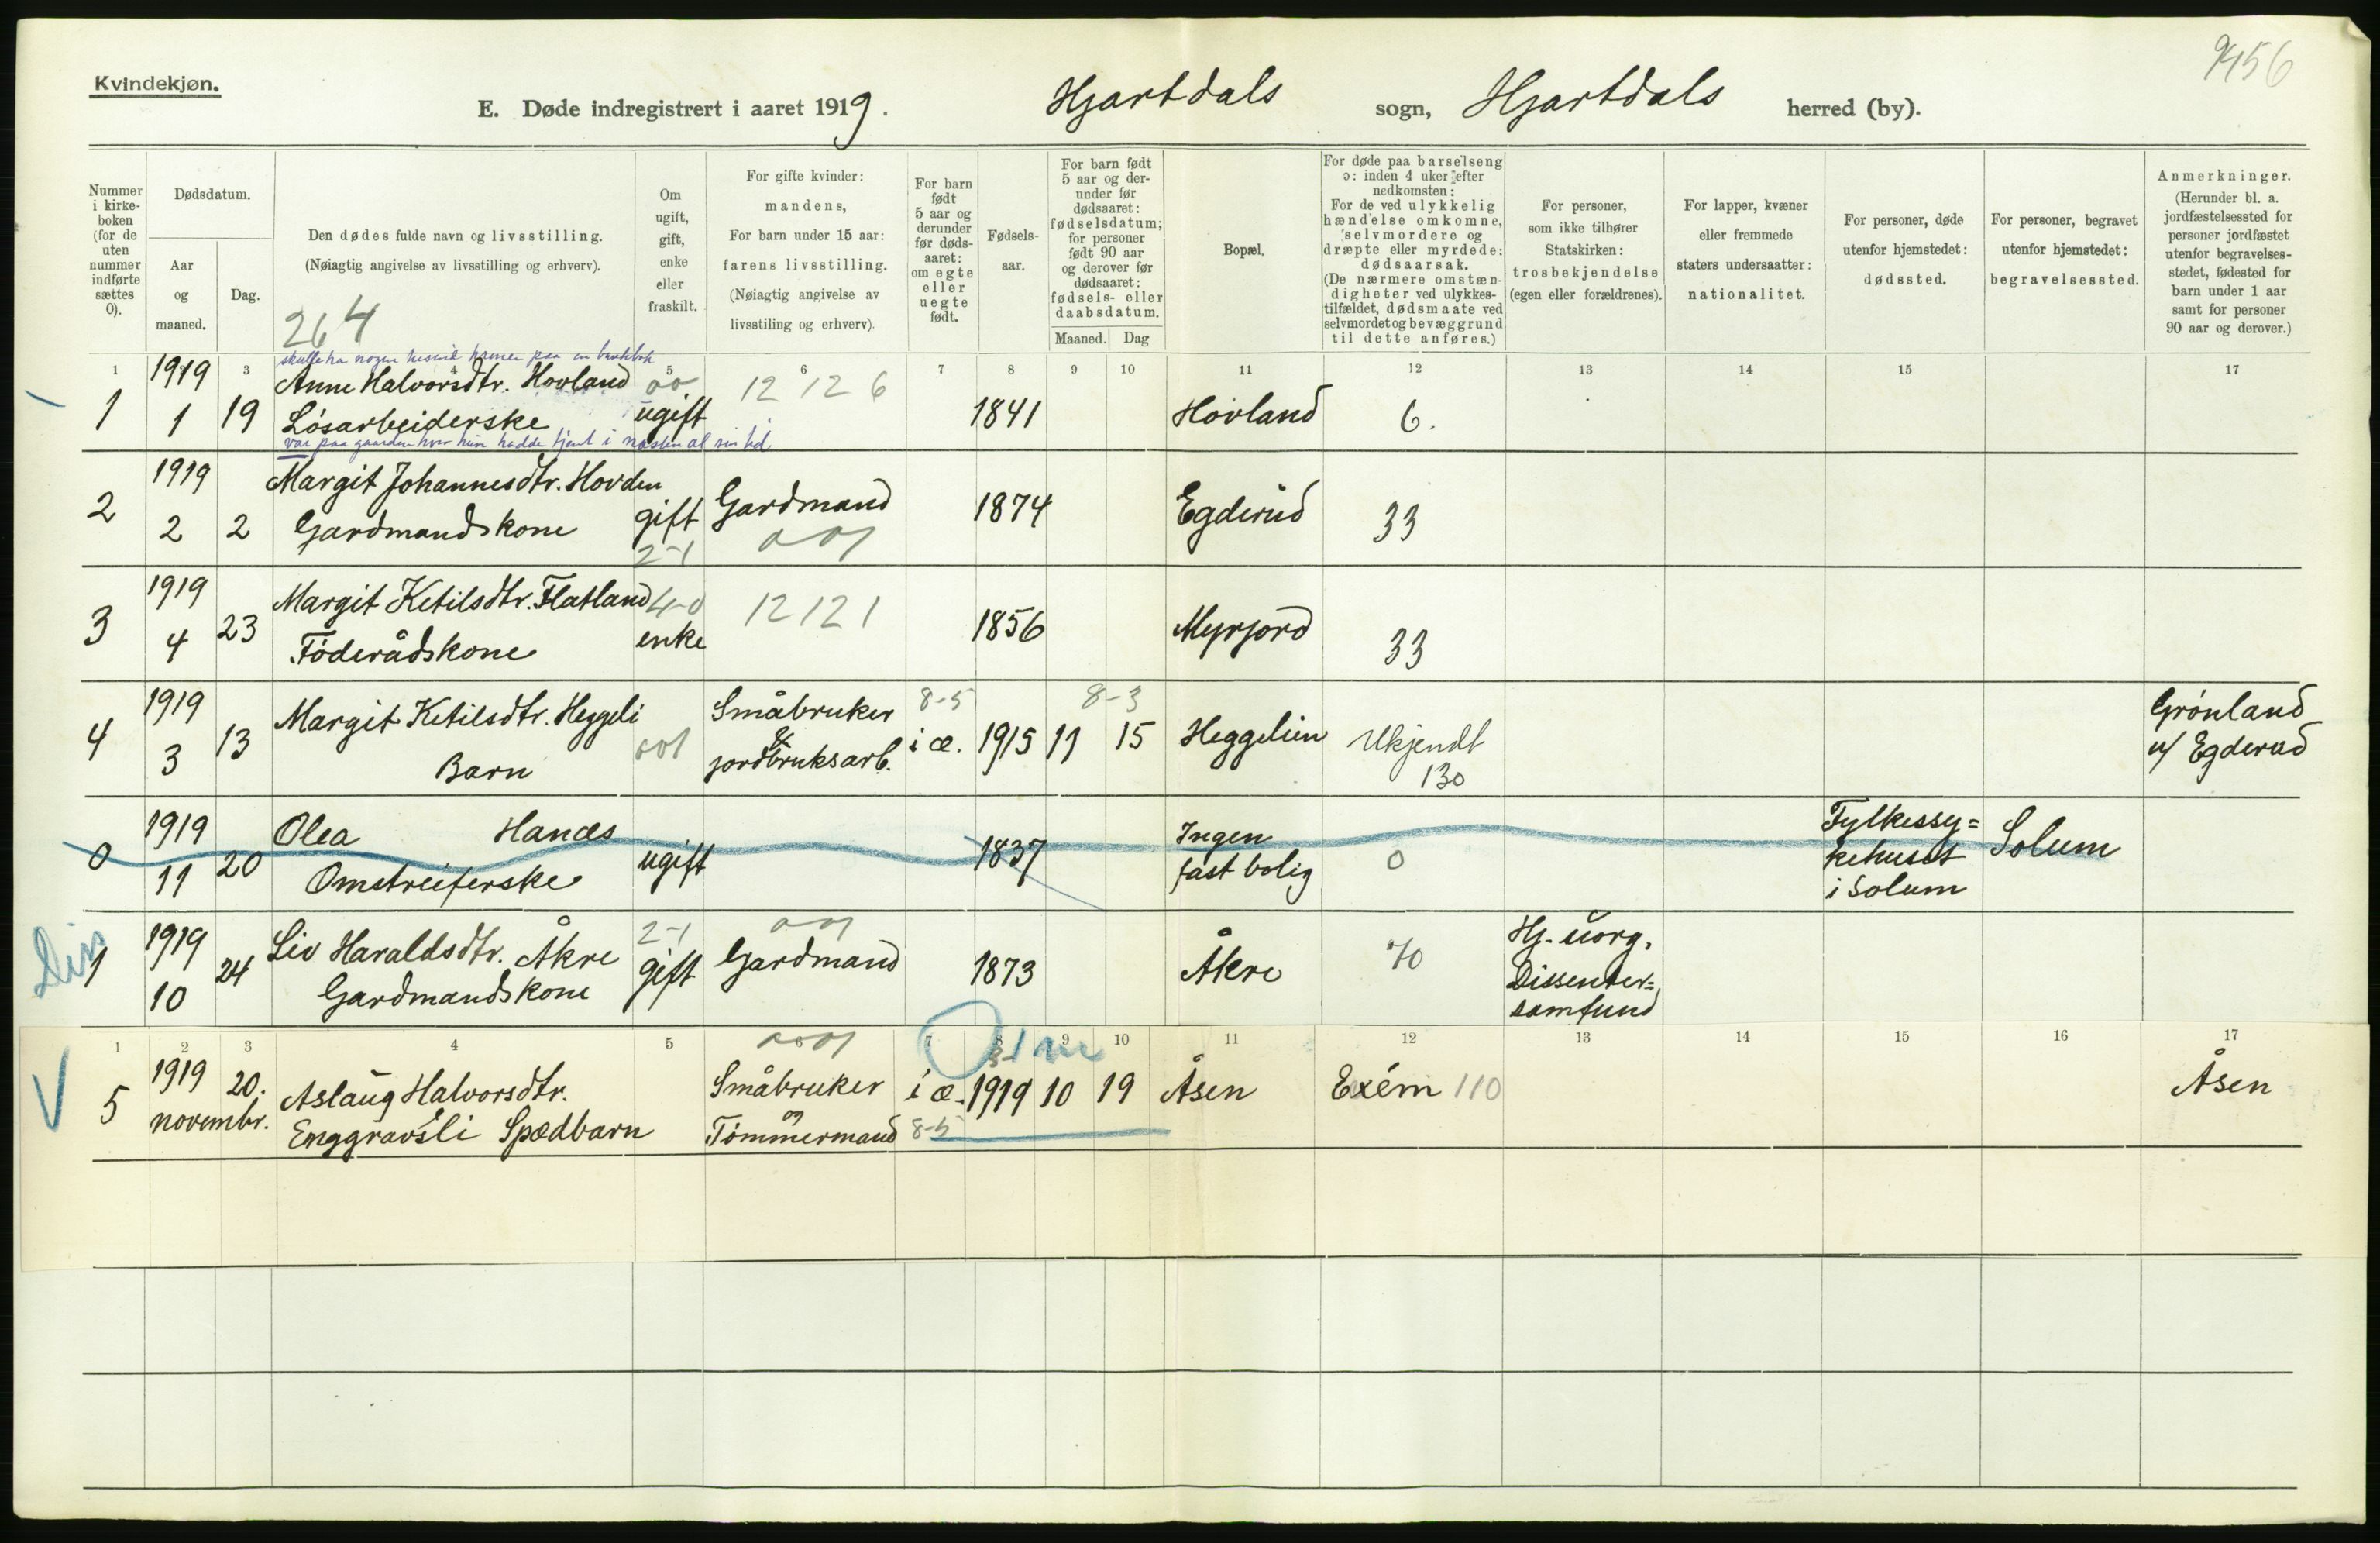 Kvindekjøn.
9456
E. Døde indregistrert i aaret 1919. Hjartdals sogn, Hjartdals herred (by).
Nummer i kirke-boken (for de uten nummer indførte sættes 0).
Dødsdatum.
Aar og maaned.
Dag.
Den dødes fulde navn og livsstilling.
(Nøiagtig angivelse av livsstilling og erhverv).
264
Om ugift, gift, enke eller fraskilt.
For gifte kvinder: mandens, For barn under 15 aar: farens livsstilling. (Nøiagtig angivelse av livsstiling og erhverv).
For barn født 5 aar og derunder før døds-aaret: om egte eller uegte født.
Fødsels-aar.
For barn født 5 aar og der-under før dødsaaret: fødselsdatum; for personer født 90 aar og derover før dødsaaret: fødsels- eller daabsdatum.
Maaned. Dag
Bopæl.
For døde paa barselseng ɔ: inden 4 uker efter nedkomsten: For de ved ulykkelig hændelse omkomne, selvmordere og dræpte eller myrdede: dødsaarsak. (De nærmere omstæn-digheter ved ulykkes-tilfældet, dødsmaate ved selvmordet og bevæggrund til dette anføres.)
For personer, som ikke tilhører Statskirken: trosbekjendelse (egen eller forældrenes).
For lapper, kvæner eller fremmede staters undersaatter: nationalitet.
For personer, døde utenfor hjemstedet: dødssted.
For personer, begravet utenfor hjemstedet: begravelsessted.
Anmerkninger. (Herunder bl. a. jordfæstelsessted for personer jordfæstet utenfor begravelses-stedet, fødested for barn under 1 aar samt for personer 90 aar og derover.)
1 3 4 5 6 7 8 9 10 11 12 13 14 15 17
skulle ha nogen paa en
1919 Anne Halvorsdtr. Hovland 12 12 6
1 1 19 Løsarbeiderske ugift 1841 Hovland 6.
var paa gaarden hvor hun hadde tjent i næsten al sin tid
1919 Margit Johannesdtr. Hovden
2 2 2 Gardmandskone gift Gardmand 1874 Egderud 33
2-1
1919 Margit Ketilsdtr. Flatland 4-0 12 12 1
3 4 23 Föderådskone enke 1856 Myrjord 33
1919 Margit Ketilsdtr. Heggeli Småbruker 8-5 8-3 Grönland
4 3 13 Barn & jordbruksarb. i æ. 1915 11 15 Heggelien Ukjendt 130 u/ Egderud
1919 Olea Hanæs Ingen Fylkessy=
0 11 20 Omstreiferske ugift 1837 fast bolig 0 kehuset i Solum Solum
Dis
1919 Liv Haraldsdtr. Åkre 2-1 Hj. uorg.
1 10 24 Gardmandskone gift Gardmand 1873 Åkre 70 Dissenter= samfund
1 2 3 4 5 6 7 8 9 10 11 12 13 14 15 16 17
V 1919 20. Aslaug Halvorsdtr. Småbruker i æ. 1919 10 19 Åsen Exém 110 Åsen
5 novembr. Enggravsli Spædbarn og Tömmermand 8-5